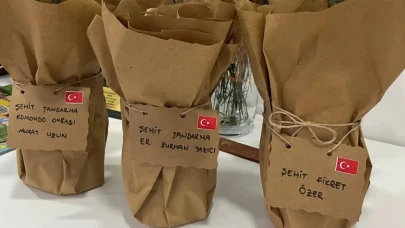 ŞEHİT JANDARMA
KOMONDO ONBAŞI
MURAT UZUN
ŞEHİT JANDARMA
ER BURHAN YAZICI
ŞEHİT FİKRET
ÖZER